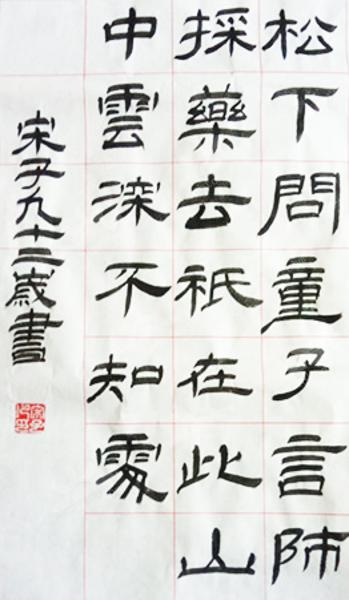 松下問童子言師
採藥去祇在此山
中雲深不知處
宋子九十三歲書